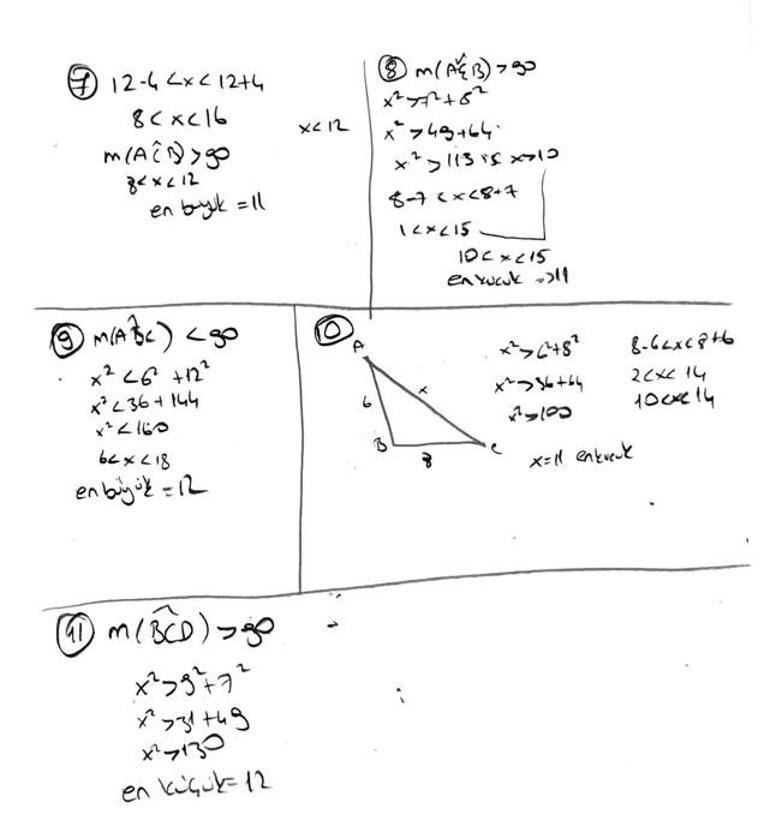 7 12-4 < x < 12+4
8 < x < 16
x < 12
m(AĈB) > 90
8 < x < 12
en büyük = 11
8 m(AĈB) > 90
x² > 7² + 8²
x² > 49 + 64
x² > 113 x > 10
8-7 < x < 8+7
1 < x < 15
10 < x < 15
en kücük => 11
9 m(AB̂C) < 90
x² < 6² + 12²
x² < 36 + 144
x² < 160
6 < x < 18
en büyük = 12
10
A
6
x
B
8
C
x² > 6² + 8²
x² > 36 + 64
x² > 100
x = 11 en kucuk
8-6 < x < 8+6
2 < x < 14
10 < x < 14
11 m(BĈD) > 90
x² > 9² + 7²
x² > 81 + 49
x² > 130
en küçük = 12